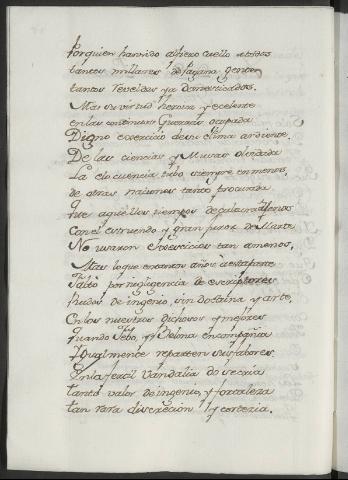 Por quien han sido a fiero cuello atados
tantos millares de Pagana gente
tantos reveldes ya domesticados.
Mas su virtud heroica y excelente
en las continuas Guerras ocupada
Digno exercicio de su clima ardiente,
De las ciencias y Musas olvidada
La elocuencia tubo siempre en menos,
de otras naciones tanto procurada
q fue aquellos tiempos de calamidad llenos
Con el estruendo y gran furor de Marte
No usaron exercicios tan amenos,
Mas lo que en tantos años a esta parte
faltó por negligencia de escriptores
Rudos de ingenio, sin doctrina y arte,
En los nuestros dichosos y mejores
quando Febo, y Belona en compañia
Igualmente reparten sus fabores.
En la fertil Vandalia do se cria
tanto valor de ingenio, y fortaleza
tan rara discrecion y cortesia.